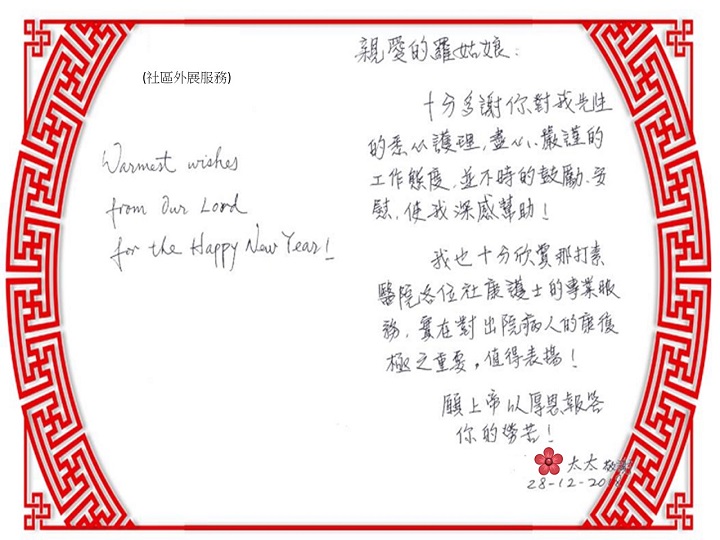 (社區外展服務)
Warmest wishes
from Our Lord
for the Happy New Year!
親愛的羅姑娘:
十分多謝你對我先生
的悉心護理,盡心、嚴謹的
工作態度,並不時的鼓勵、安
慰,使我深感幫助!
我也十分欣賞那打素
醫院各位社康護士的專業服
務,實在對出院病人的康復
極之重要,值得表揚!
願上帝以厚恩報答
你的勞苦!
太太
28-12-